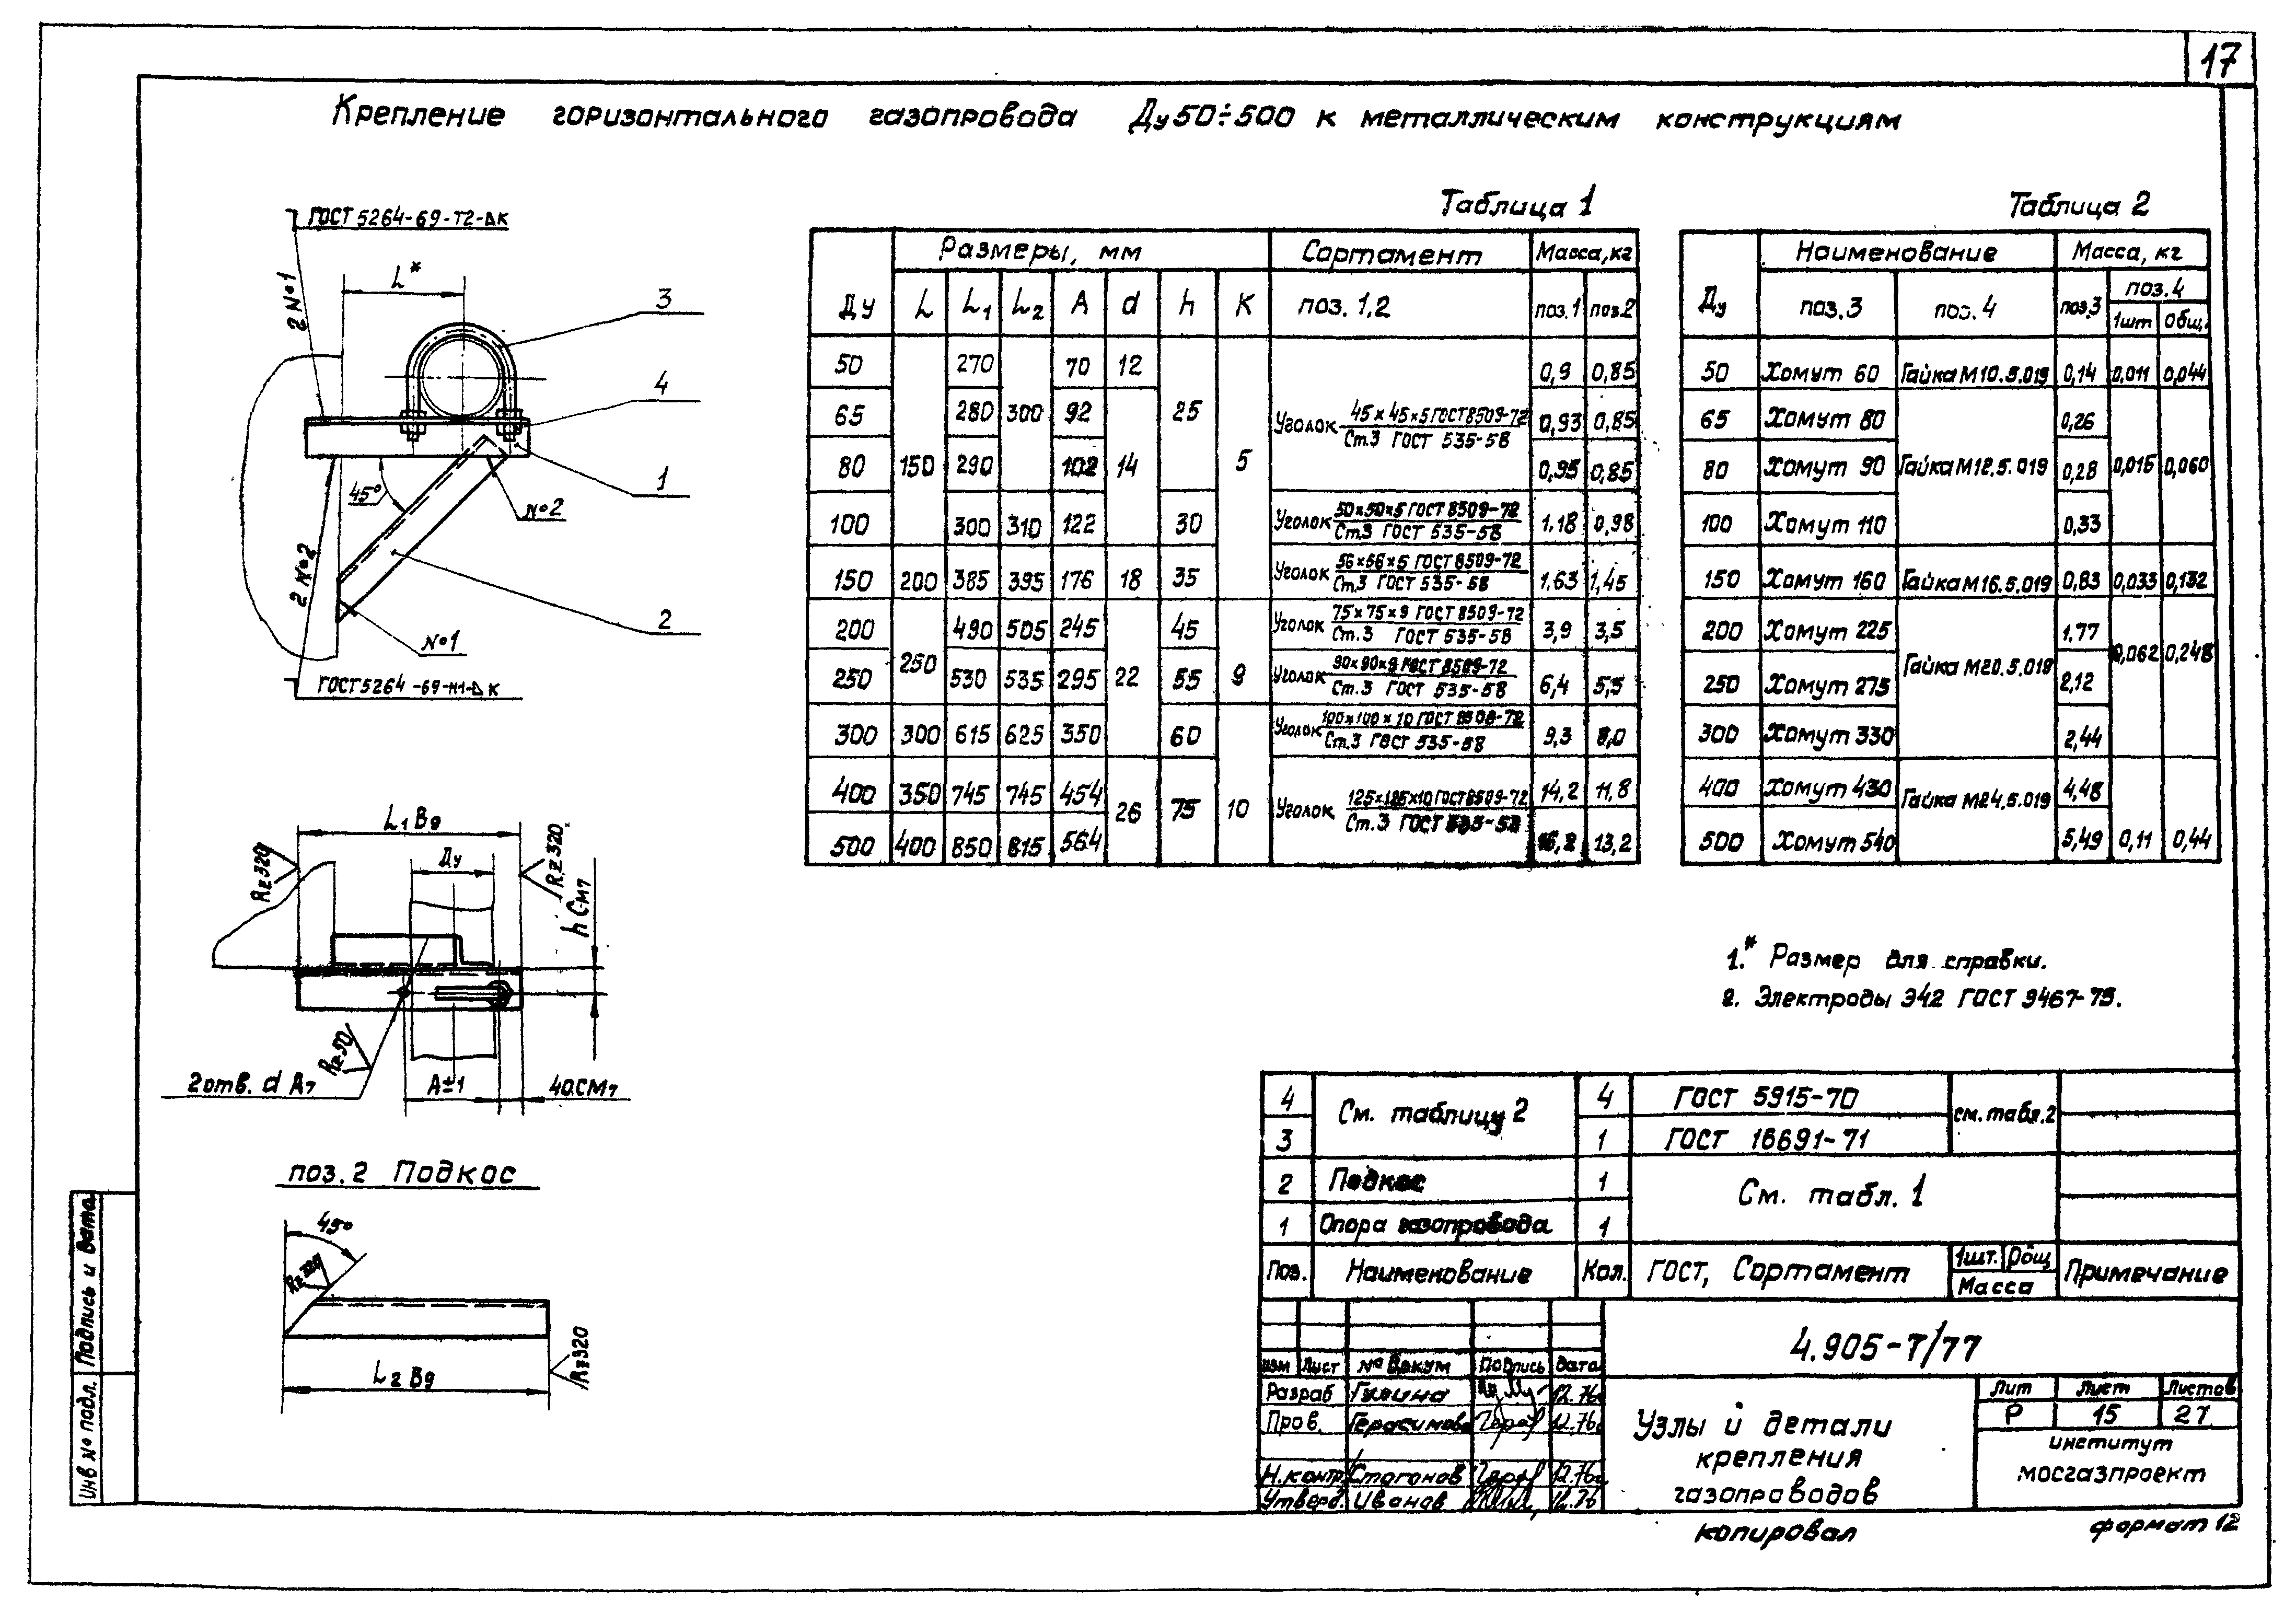 17
Крепление горизонтального газопровода Ду 50÷500 к металлическим конструкциям
ГОСТ 5264-69-Т2-ΔК
2 №1
L*
3
4
1
45°
№2
2 №2
2
№1
ГОСТ 5264-69-Н1-ΔК
L₁ В9
Rz 320
Ду
Rz 320
h См7
Rz 50
2 отв. d А7
А±1
40.СМ7
поз. 2 Подкос
45°
Rz 320
Rz 320
L₂ В9
Таблица 1
Ду Размеры, мм Сортамент Масса, кг
L L₁ L₂ А d h К поз. 1,2 поз.1 поз.2
50 270 70 12 0,9 0,85
65 280 300 92 25 Уголок 45×45×5 ГОСТ 8509-72 0,93 0,85
Ст.3 ГОСТ 535-58
80 150 290 102 14 5 0,95 0,85
100 300 310 122 30 Уголок 50×50×5 ГОСТ 8509-72 1,18 0,98
Ст.3 ГОСТ 535-58
150 200 385 395 176 18 35 Уголок 56×56×5 ГОСТ 8509-72 1,63 1,45
Ст.3 ГОСТ 535-58
200 490 505 245 45 Уголок 75×75×9 ГОСТ 8509-72 3,9 3,5
Ст.3 ГОСТ 535-58
250 250 530 535 295 22 55 9 Уголок 90×90×9 ГОСТ 8509-72 6,4 5,5
Ст.3 ГОСТ 535-58
300 300 615 625 350 60 Уголок 100×100×10 ГОСТ 8509-72 9,3 8,0
Ст.3 ГОСТ 535-58
400 350 745 745 454 26 75 10 Уголок 125×125×10 ГОСТ 8509-72 14,2 11,8
Ст.3 ГОСТ 535-58
500 400 850 815 564 16,2 13,2
Таблица 2
Ду Наименование Масса, кг
поз. 3 поз. 4 поз.3 поз.4
1шт общ.
50 Хомут 60 Гайка М10.5.019 0,14 0,011 0,044
65 Хомут 80 0,26
80 Хомут 90 Гайка М12.5.019 0,28 0,015 0,060
100 Хомут 110 0,33
150 Хомут 160 Гайка М16.5.019 0,83 0,033 0,132
200 Хомут 225 1,77
Гайка М20.5.019 0,062 0,248
250 Хомут 275 2,12
300 Хомут 330 2,44
400 Хомут 430 Гайка М24.5.019 4,48
500 Хомут 540 5,49 0,11 0,44
1.* Размер для справки.
2. Электроды Э42 ГОСТ 9467-75.
4 См. таблицу 2 4 ГОСТ 5915-70 см. табл. 2
3 1 ГОСТ 16691-71
2 Подкос 1 См. табл. 1
1 Опора газопровода 1
Поз. Наименование Кол. ГОСТ, Сортамент 1шт. Общ Примечание
Масса
4.905-7/77
изм Лист № докум Подпись дата
Разраб 12.76г
Пров. Герасимова 12.76г
Н.контр Стаганов 12.76г
Утверд. Иванов 12.76
Узлы и детали
крепления
газопроводов
Лит Лист Листов
Р 15 27
институт
мосгазпроект
копировал
формат 12
Подпись и дата
Инв № подл.